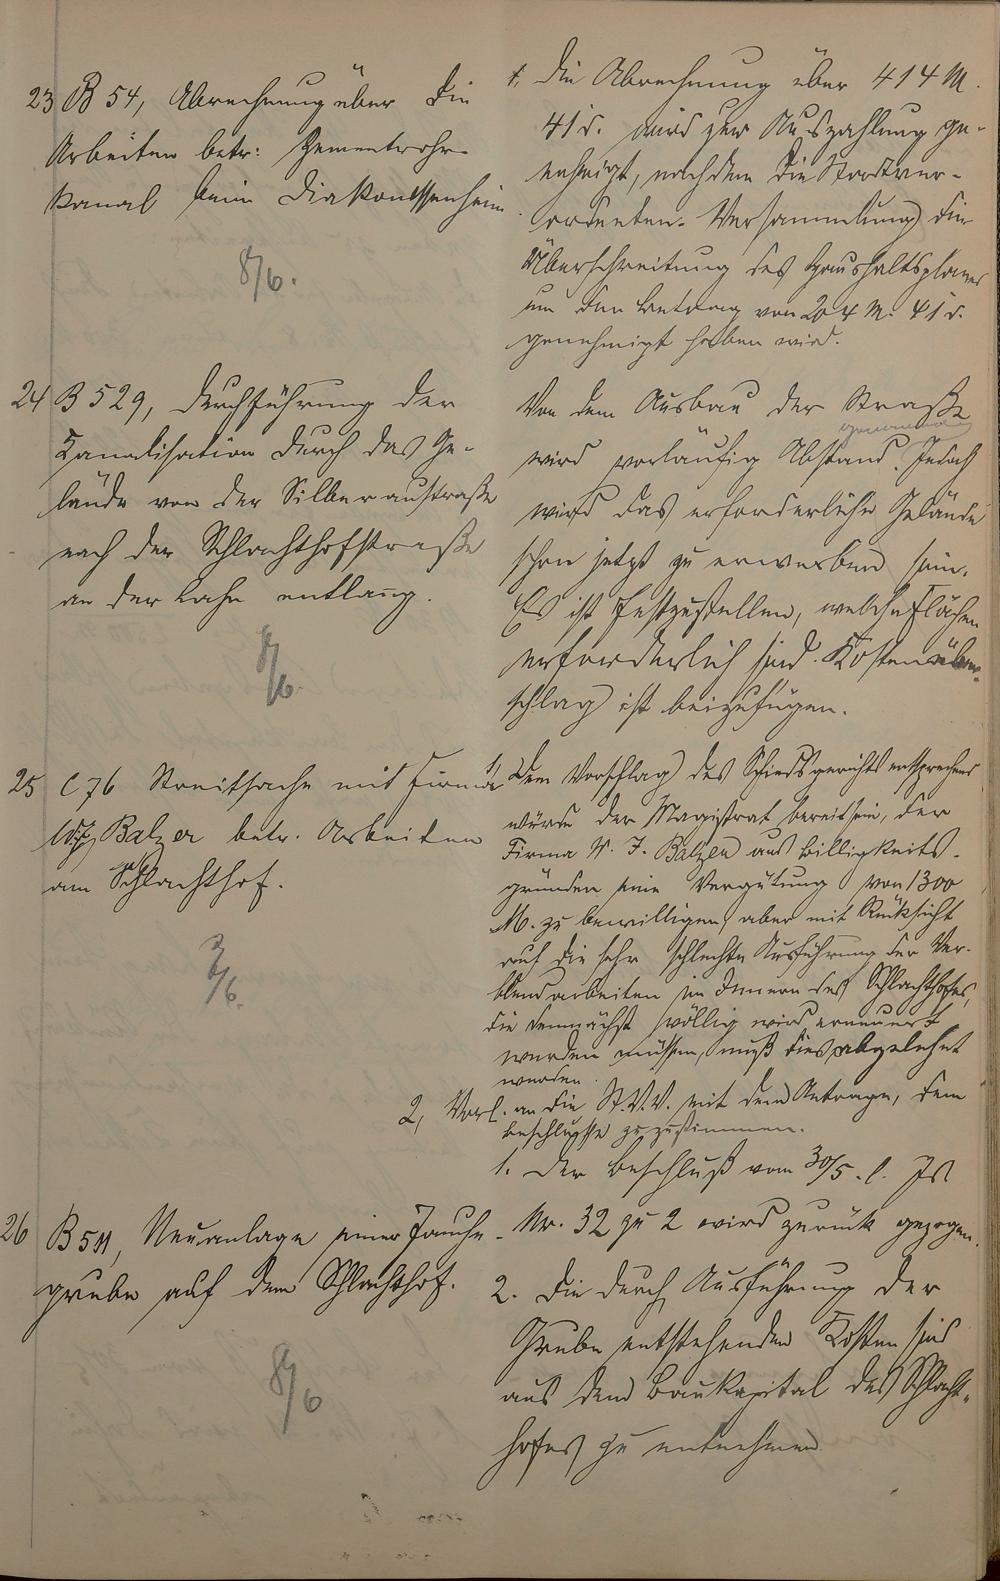 23 B 54, Abrechnung über die
Arbeiten betr: Zementrohr-
kanal beim Diakonissenheim
8/6.
1. Die Abrechnung über 414 M.
41 d. wird zur Auszahlung ge-
nehmigt, nachdem die Stadtver-
ordneten-Versammlung die
Überschreitung des Haushaltsplanes
um den Betrag von 204 M. 41 d.
genehmigt haben wird.
24 B 529, Durchführung der
Kanalisation durch das Ge-
lände von der Silberaustraße
nach der Schlachthofstraße
an der Lahn entlang.
8/6.
Von dem Ausbau der Straße
genommen
wird vorläufig Abstand. Jedoch
wird das erforderliche Gelände
schon jetzt zu erwerben sein.
Es ist festzustellen, welche Flächen
erforderlich sind. Kostenüber-
schlag ist beizufügen.
25 C 76 Streitsache mit Firma
Balzer betr. Arbeiten
am Schlachthof.
/6.
1, Dem Vorschlag des Schiedsgerichts entsprechend
würde der Magistrat bereit sein, der
Firma W. J. Balzer aus Billigkeits-
gründen eine Vergütung von 1300
M. zu bewilligen, aber mit Rücksicht
auf die sehr schlechte Ausführung der Ver-
blendarbeiten im Innern des Schlachthofes,
die demnächst völlig wird erneuert
werden müssen, muß dies abgelehnt
werden.
2, Vorl. an die St.V.V. mit dem Antrage, dem
Beschlusse zuzustimmen.
26 B 511, Neuanlage einer Jauche-
grube auf dem Schlachthof.
8/6
1. Der Beschluß vom 30/5. l. Js
Nr. 32 zu 2 wird zurück gezogen.
2. Die durch Ausführung der
Grube entstehenden Kosten sind
aus dem Baukapital des Schlacht-
hofes zu entnehmen